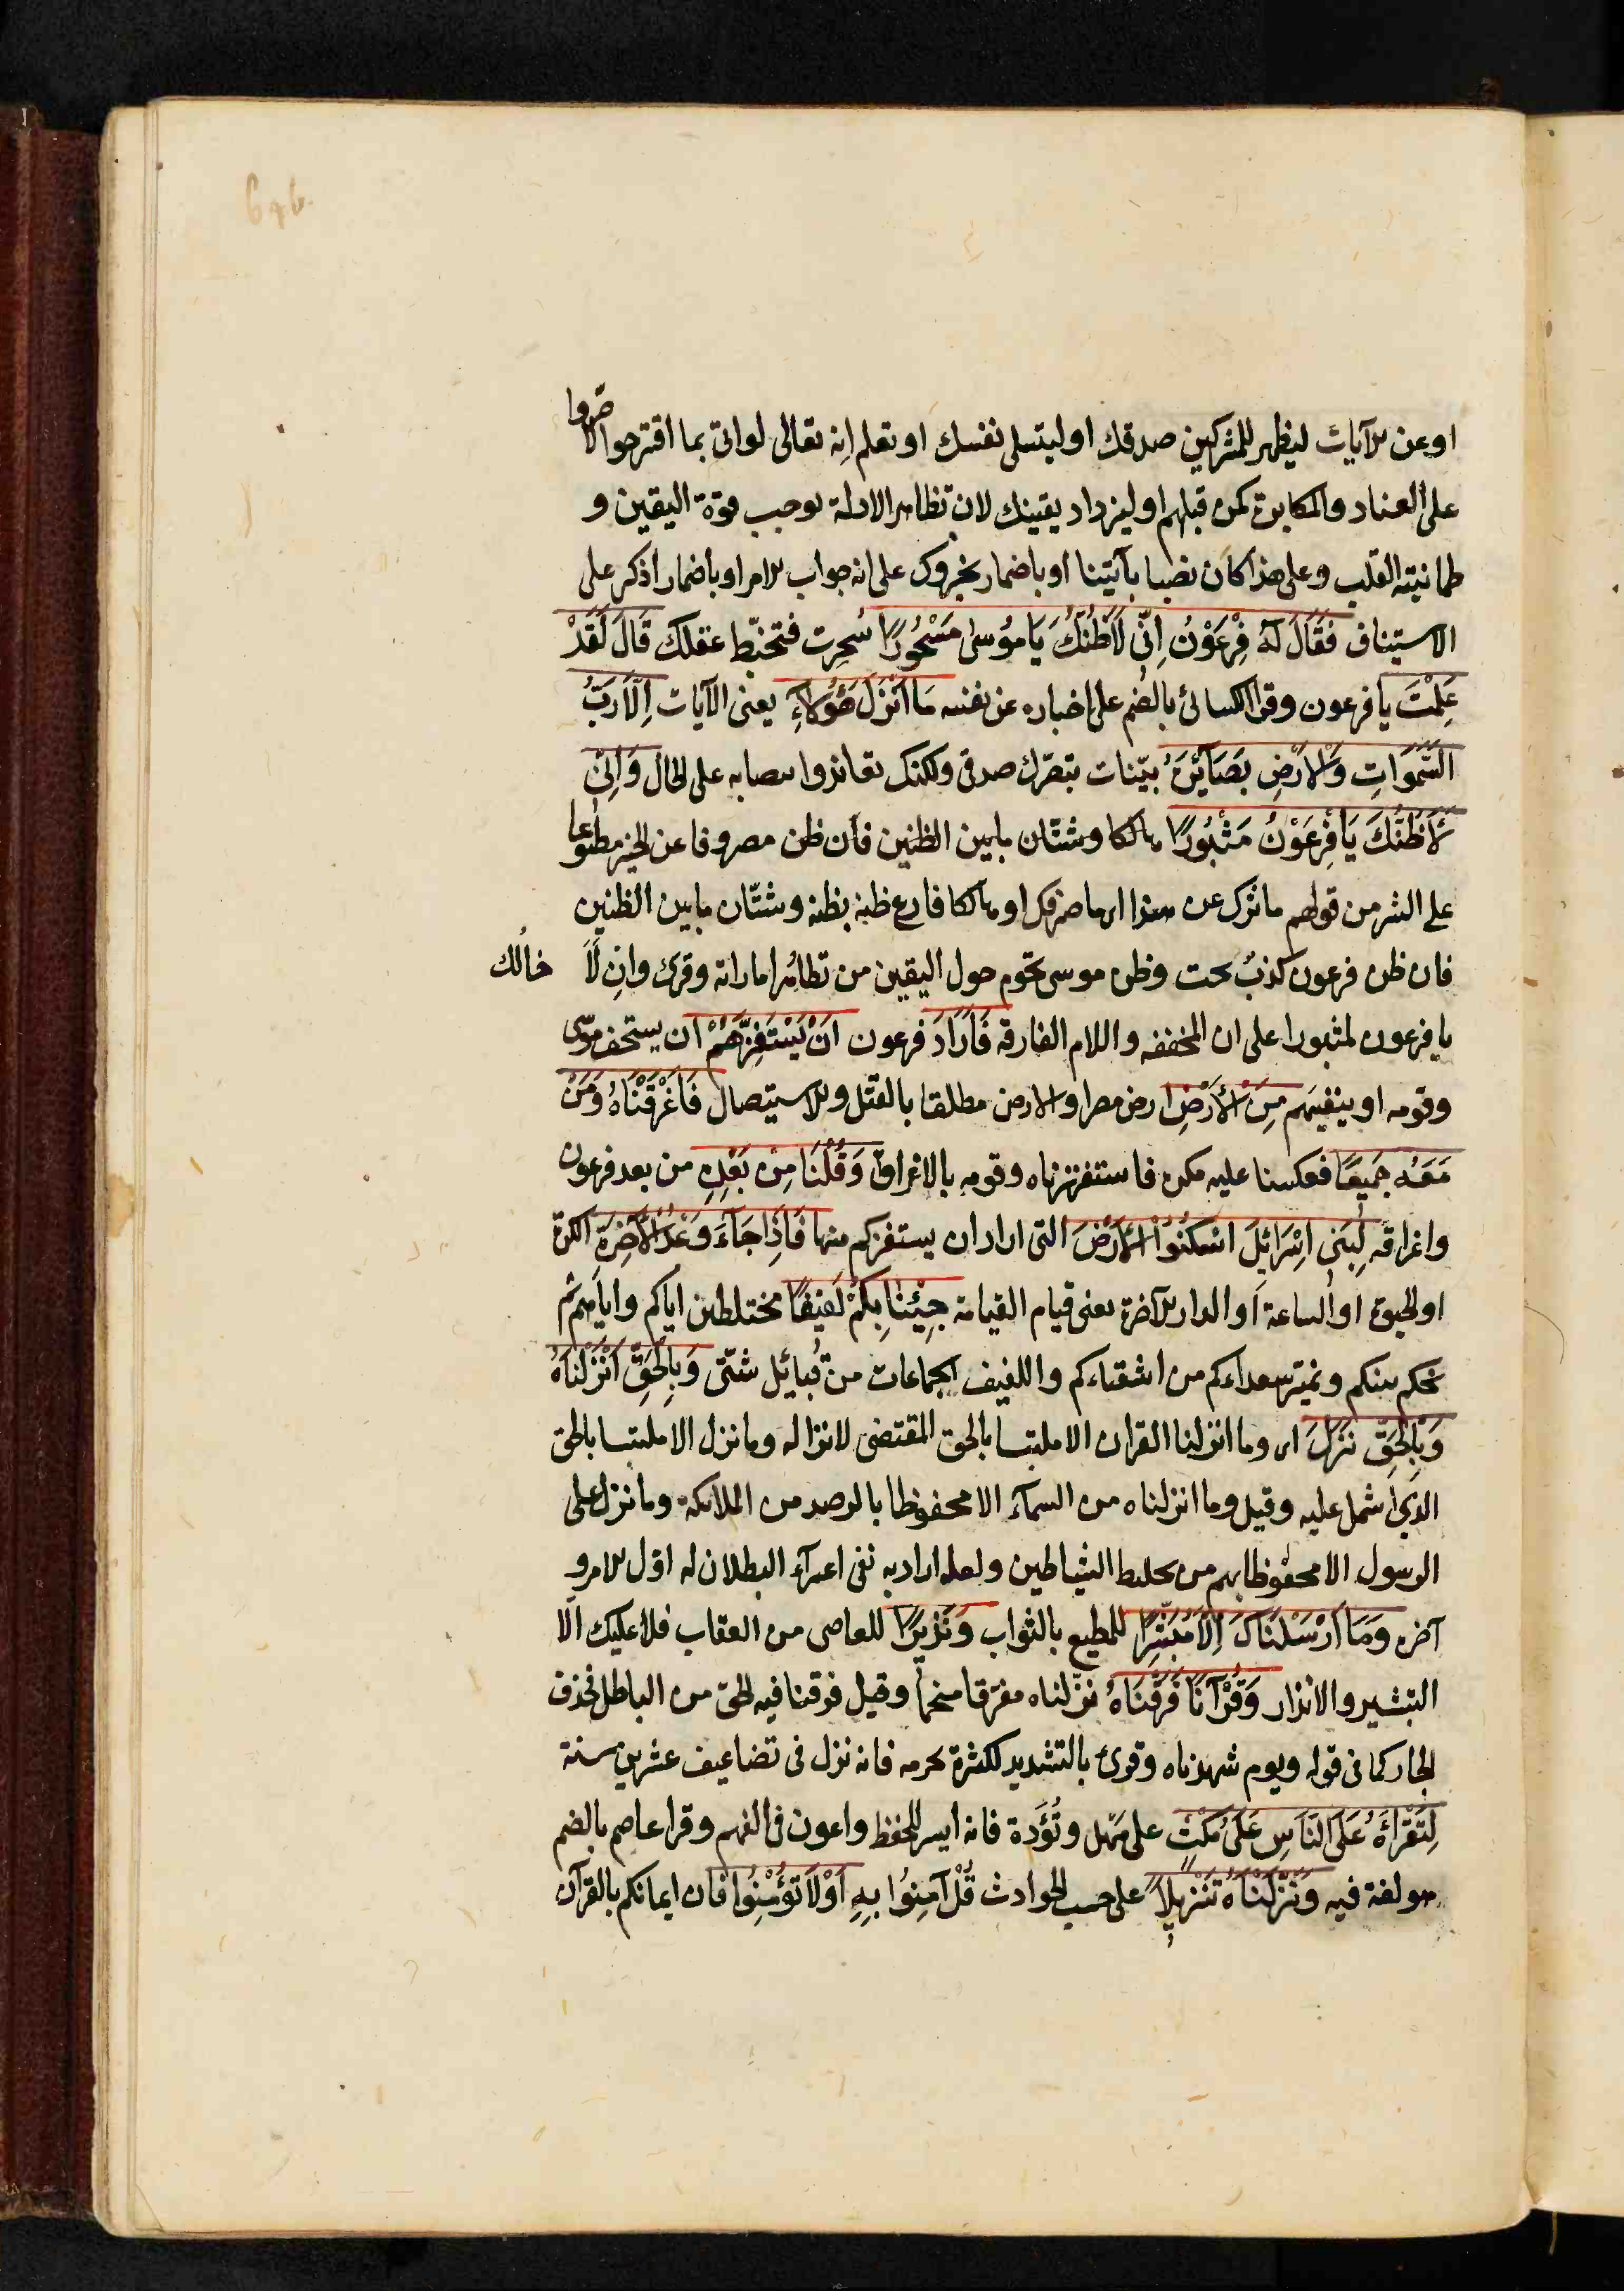 او عن الآيات ليظهر للمشركين صدقك او ليتسلى نفسك او تعلم انه تعالى لو اتى بما اقترحوا لاصروا
على العناد والمكابرة كمن قبلهم او ليزداد يقينك لان تظاهر الادلة يوجب قوة اليقين و
طمانينة القلب وعلى هذا كان نصبا بآتينا او باضمار يخبروك على انه جواب الامر او باضمار اذكر على
الاستيناف فَقَالَ لَهُ فِرْعَوْنُ اِنّى لَاَظُنُّكَ يَا مُوسىٰ مَسْحُورًا سُحِرت فتخبّط عقلك قَالَ لَقَدْ
عَلِمْتَ يا فرعون وقرا الكسائى بالضم على اخباره عن نفسه مَا اَنْزَلَ هٰؤُلَآءِ يعنى الآيات اِلَّا رَبُّ
السَّمٰوَاتِ وَالْاَرْضِ بَصَآئِرَ بيّنات تبصّرك صدقى ولكنك تعاند وانتصابه على الحال وَاِنّى
لَاَظُنُّكَ يَا فِرْعَوْنُ مَثْبُورًا مصروفا عن الخير مطبوعا
على الشر من قولهم ما ثبرك عن هذا اى ما صرفك او هالكا قارع ظنه بظنه وشتّان ما بين الظنين
فان ظن فرعون كذبٌ بحت وظن موسى يحوم حول اليقين من تظاهر اماراته وقرئ وان لَا خالك
يا فرعون لمثبورا على ان المخففه واللام الفارقه فَاَرَادَ فرعون اَنْ يَسْتَفِزَّهُمْ ان يستخف موسى
وقومه او ينفيهم مِنَ الْاَرْضِ ارض مصر او الارض مطلقا بالقتل والاستيصال فَاَغْرَقْنَاهُ وَمَنْ
مَعَهُ جَمِيعًا فعكسنا عليه مكره فاستفززناه وقومه بالاغراق وَقُلْنَا مِنْ بَعْدِهِ من بعد فرعون
واغراقه لِبَنى اِسْرَائِيلَ اسْكُنُوا الْاَرْضَ التى اراد ان يستفزكم منها فَاِذَا جَآءَ وَعْدُ الْاٰخِرَةِ الكرة
او الحيوة او الساعة او الدار الآخرة يعنى قيام القيامة جِئْنَا بِكُمْ لَفِيفًا مختلطين اياكم واياهم ثم
نحكم بينكم ونميّز سعداءكم من اشقياءكم واللفيف الجماعات من قبائل شتى وَبِالْحَقِّ اَنْزَلْنَاهُ
وَبِالْحَقِّ نَزَلَ اى وما انزلنا القران الا ملتبسا بالحق المقتضى لانزاله وما نزل الا ملتبسا بالحق
الذى اشتمل عليه وقيل وما انزلناه من السمآء الا محفوظا بالرصد من الملائكه وما نزل على
الرسول الا محفوظا بهم من تخليط الشياطين ولعله اراد به نفى اعتراء البطلان له اوّل الامر و
آخره وَمَا اَرْسَلْنَاكَ اِلَّا مُبَشِّرًا للمطيع بالثواب وَنَذِيرًا للعاصى من العقاب فلا عليك الّا
التبشير والانذار وَقُرْآنًا فَرَقْنَاهُ نزّلناه مفرّقا منجما وقيل فرقنا فيه الحق من الباطل فحذف
الجار كما فى قوله ويوم شهدناه وقرئ بالتشديد لكثرة نجومه فانه نزل فى تضاعيف عشرين سنة
لِتَقْرَاَهُ عَلَى النَّاسِ عَلىٰ مُكْثٍ على مهل وتُؤَدة فانه ايسر للحفظ واعون فى الفهم وقرا عاصم بالضم
فيه وَنَزَّلْنَاهُ تَنْزِيلًا على حسب الحوادث قُلْ آمِنُوا بِهِ اَوْ لَا تُؤْمِنُوا فان ايمانكم بالقرآن